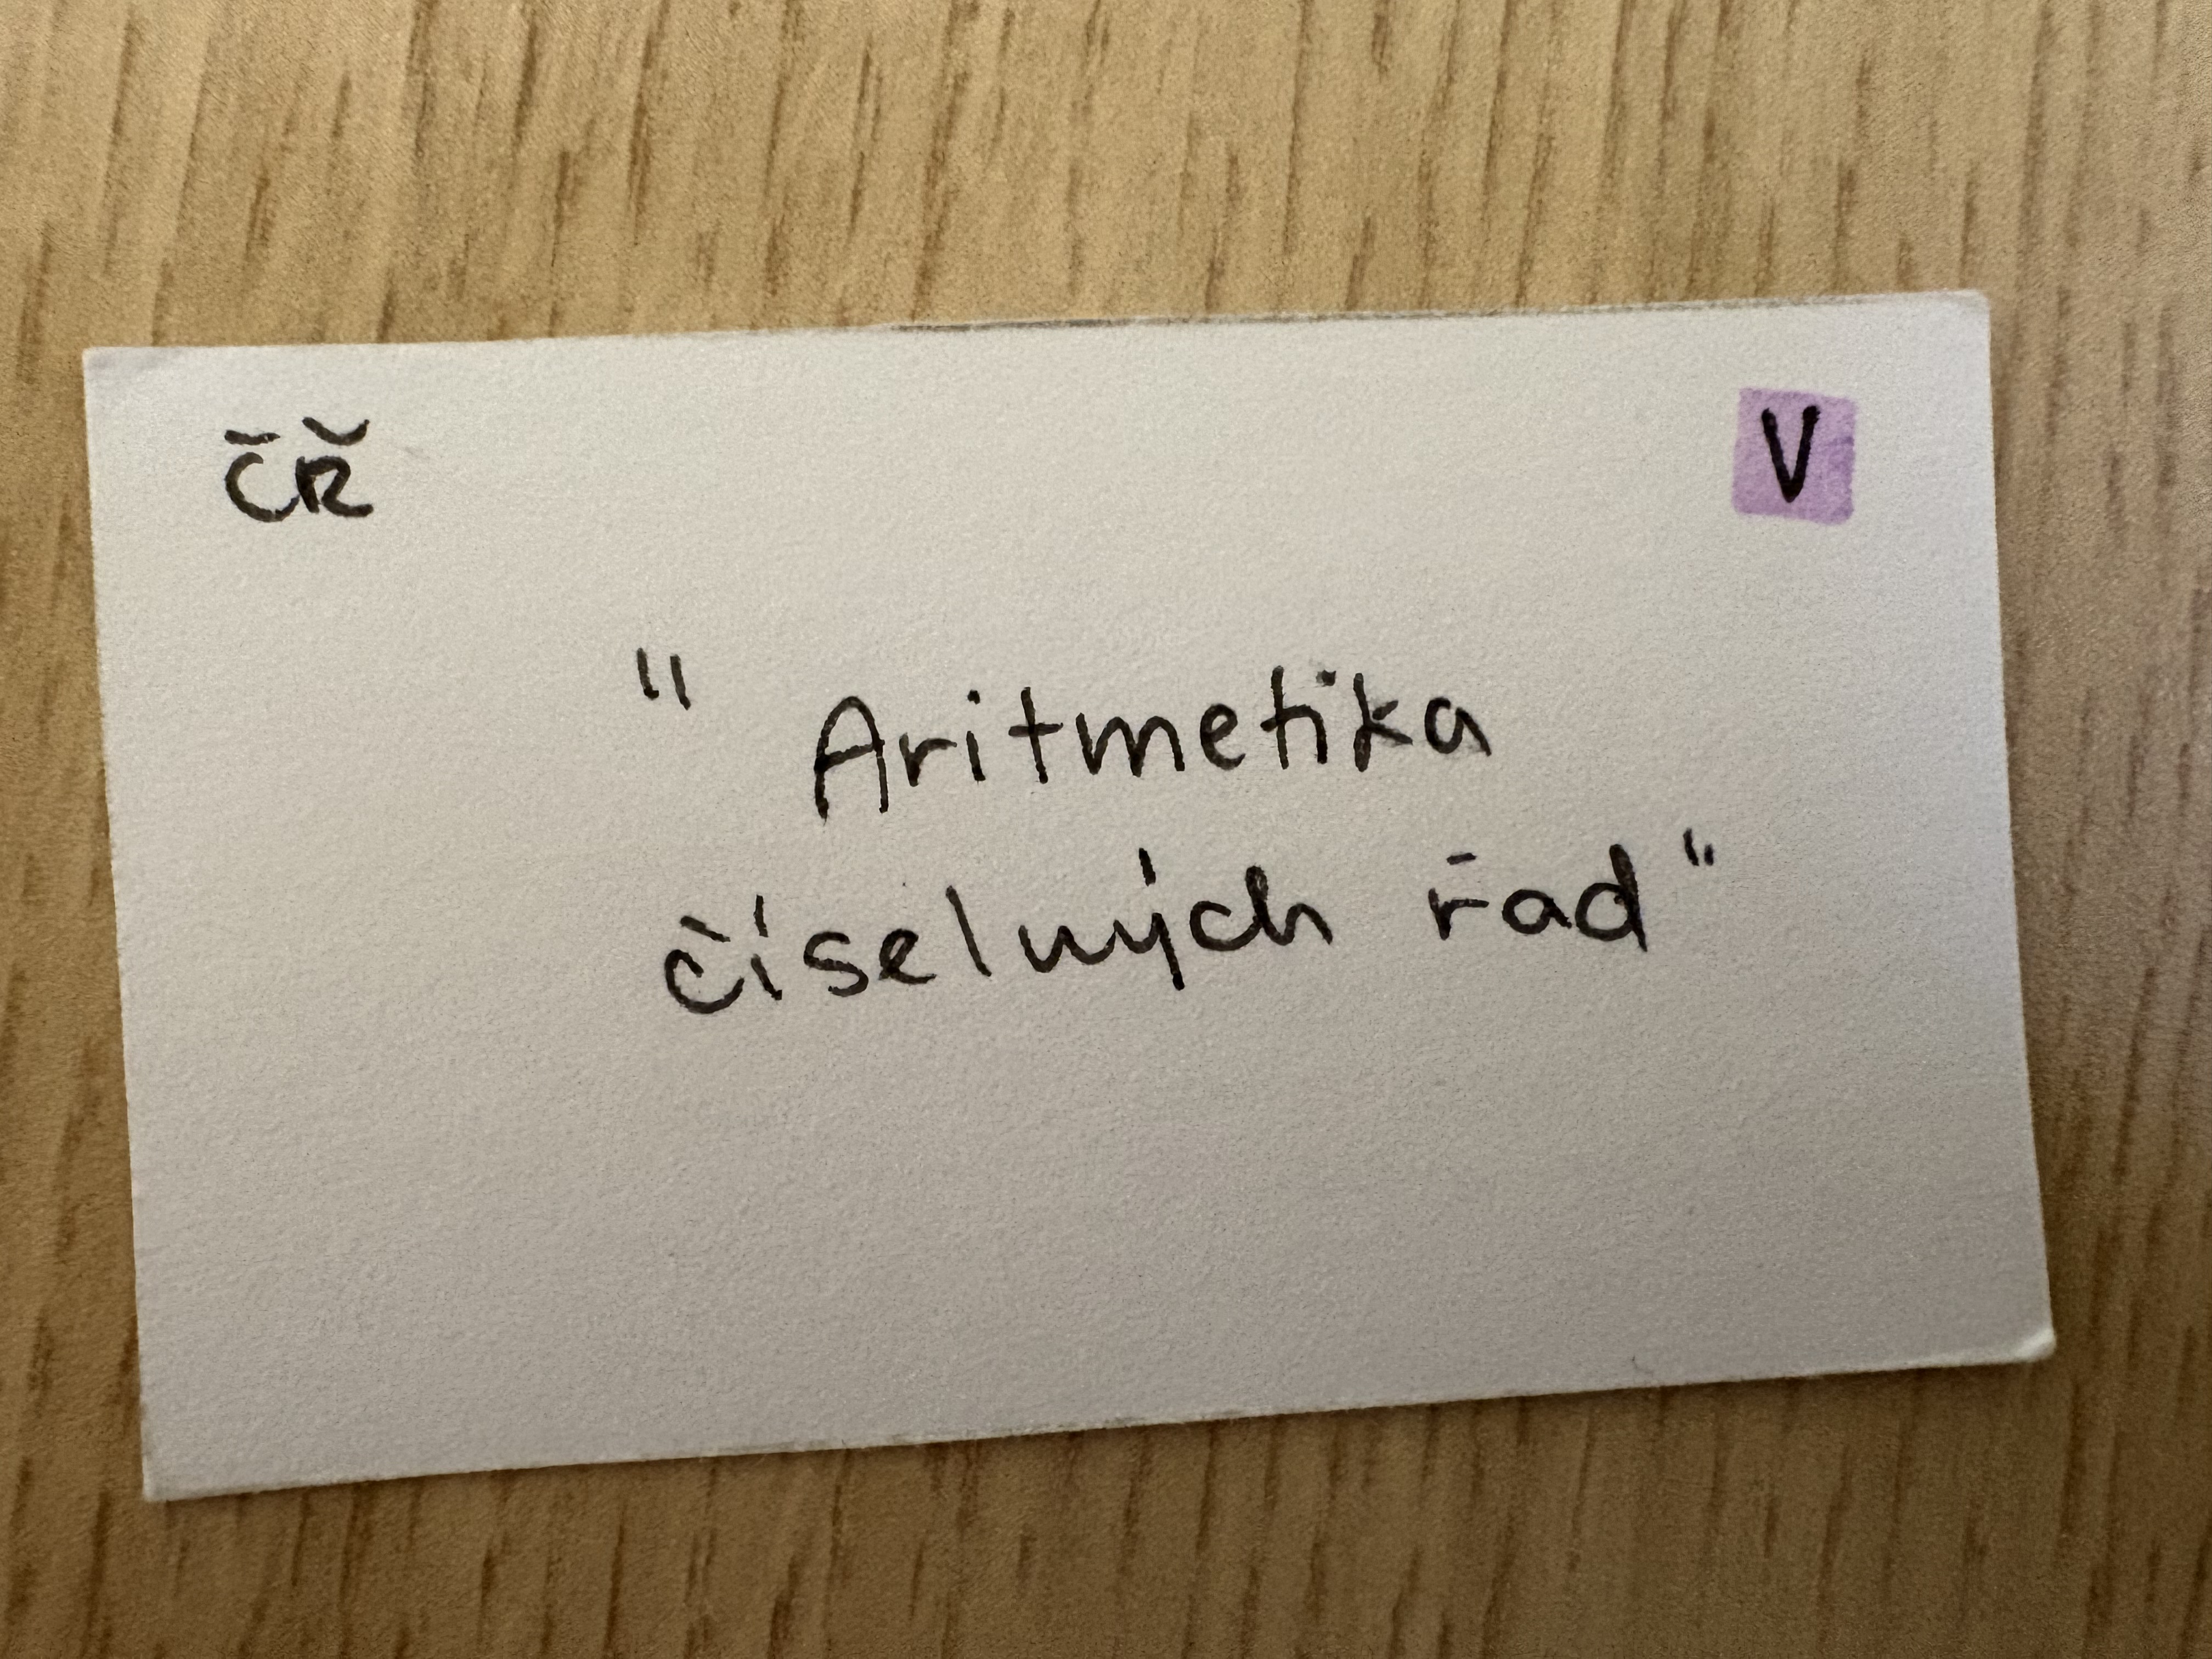 ČŘ
V
" Aritmetika
číselných řad "